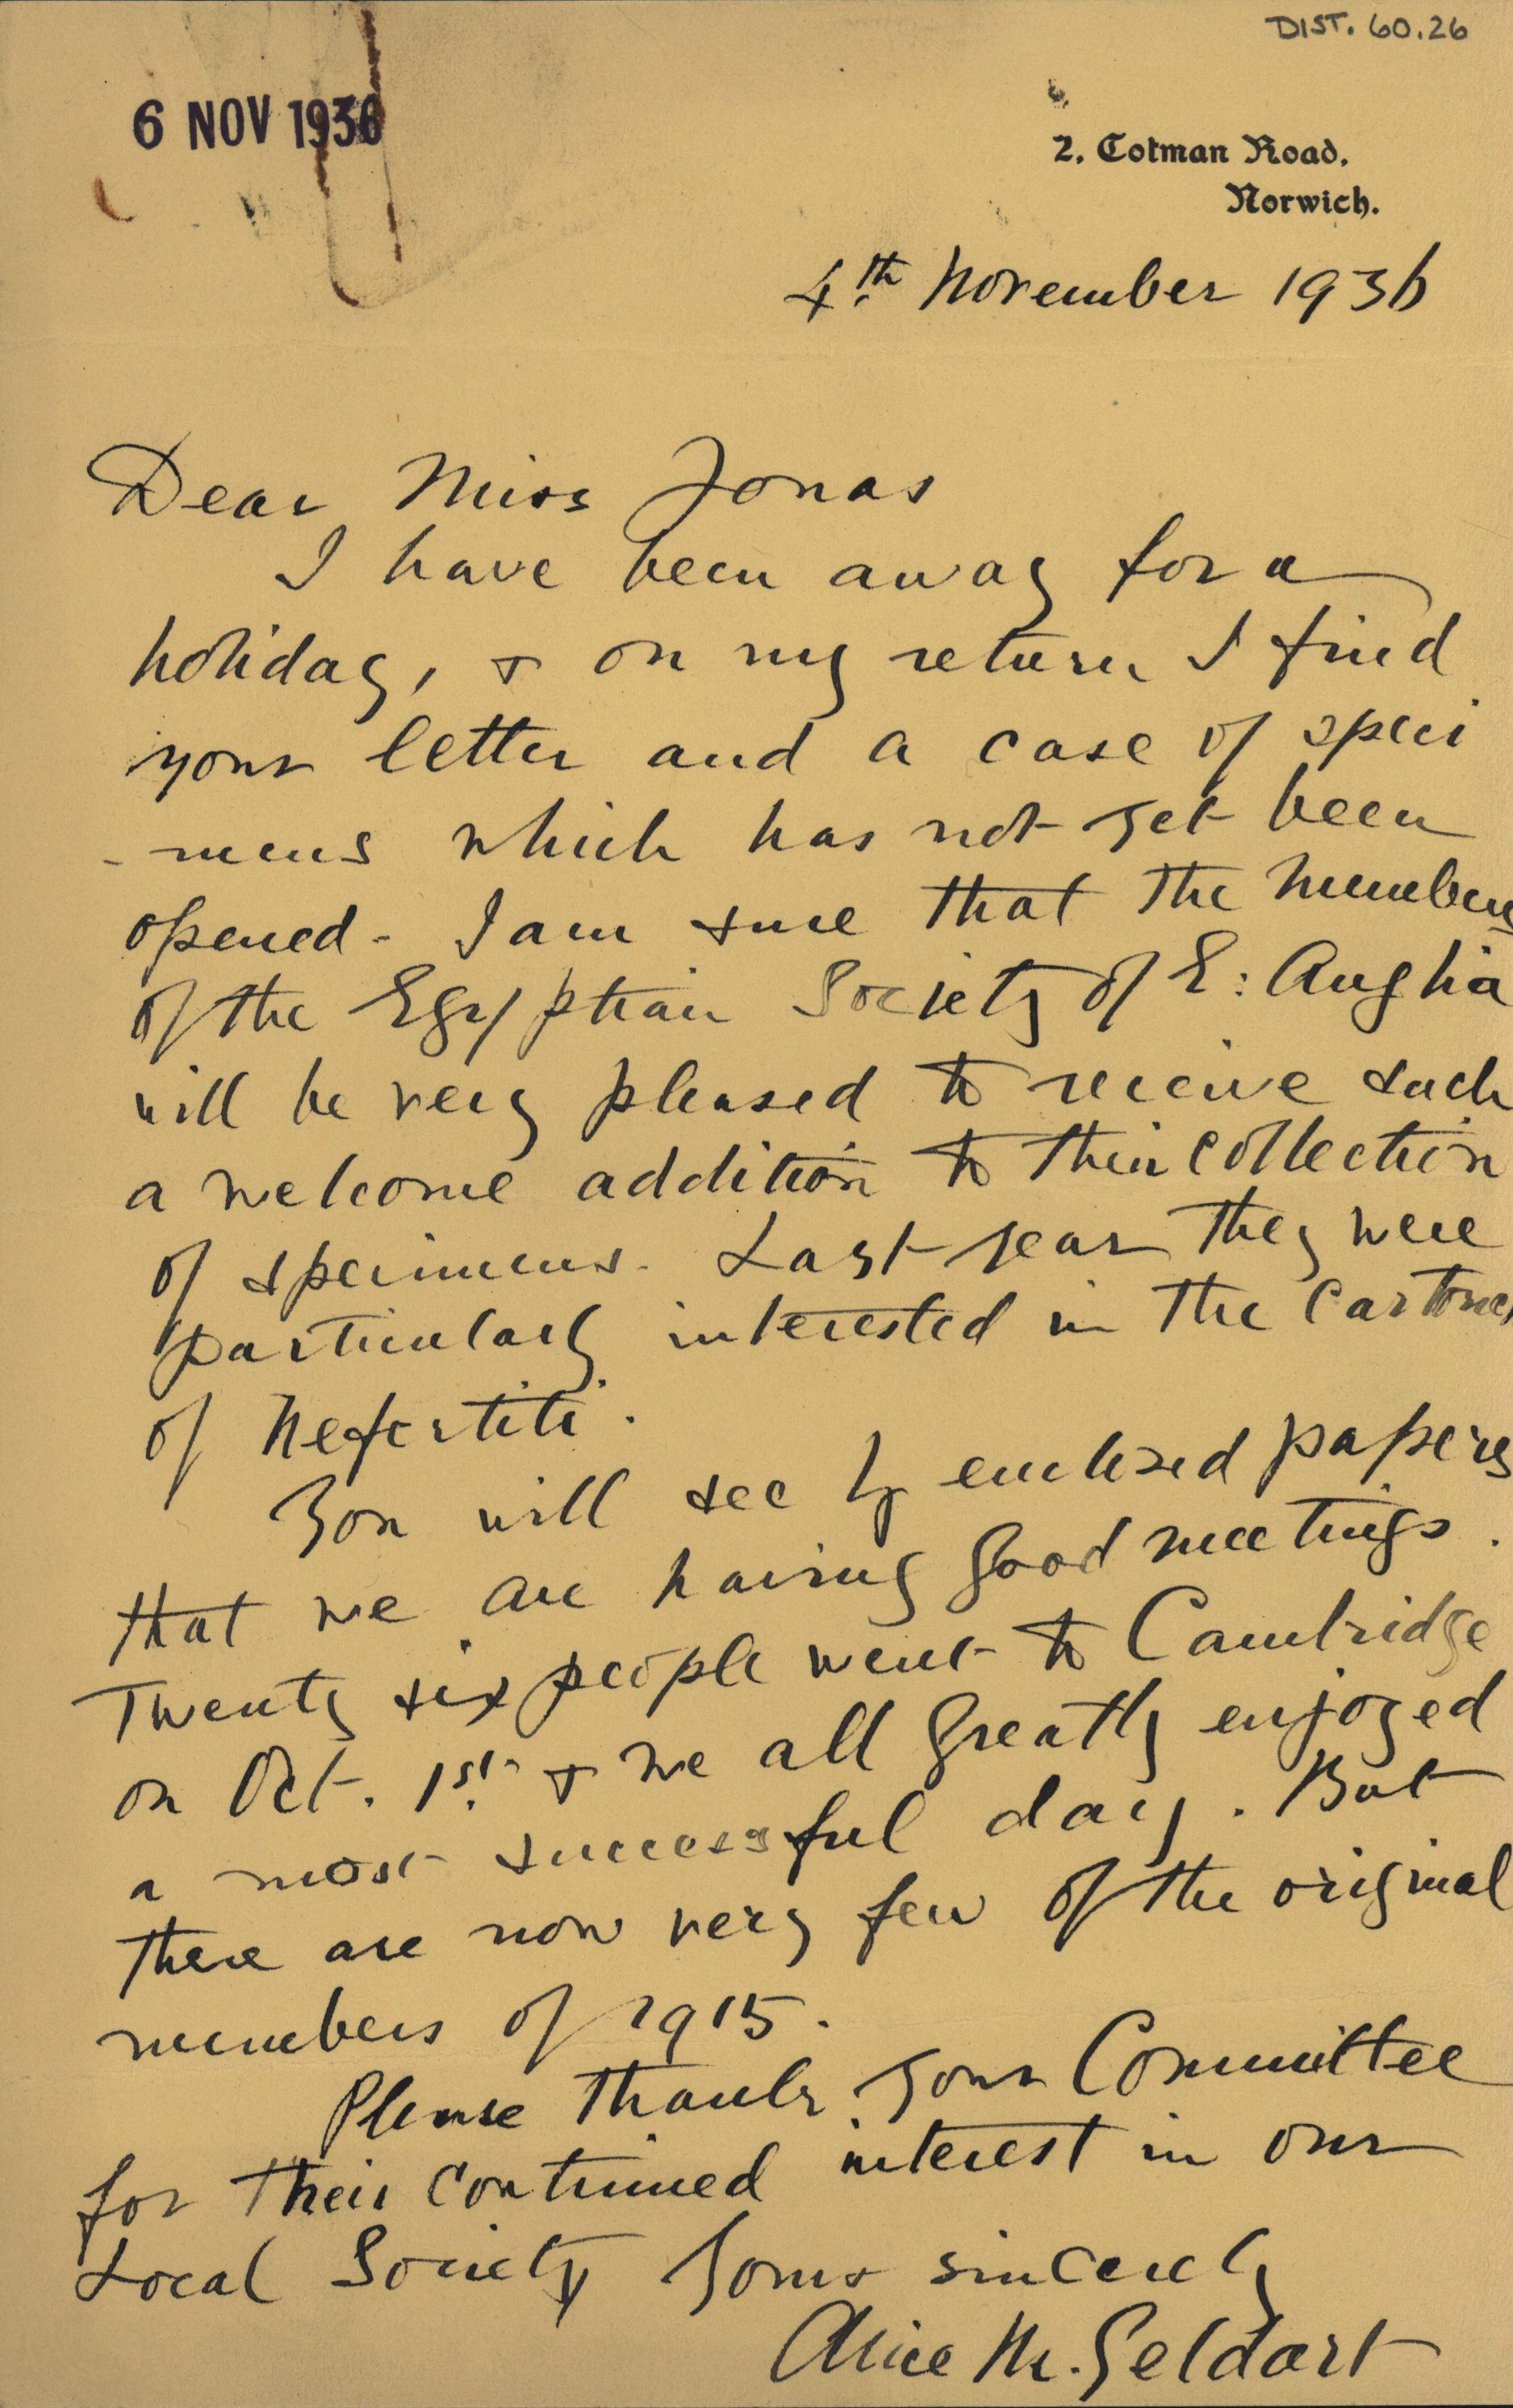 DIST. 60.26
6 NOV 1936
2, Cotman Road,
Norwich.
4th. November 1936
Dear Miss Jonas
I have been away for a
holiday, & on my return I find
your letter and a case of speci
-mens which has not yet been
opened - I am sure that the Members
of the Egyptian Society of E: Anglia
will be very pleased to receive such
a welcome addition to their collection
of specimens. Last year they were
particularly interested in the Cartouche
of Nefertiti.
You will see by enclosed papers
that we are having good meetings.
Twenty six people went to Cambridge
on Oct. 1st. & we all greatly enjoyed
a most successful day. But
there are now very few of the original
members of 1915.
Please thank your Committee
for their continued interest in our
Local Society Yours sincerely
Alice M. Geldart